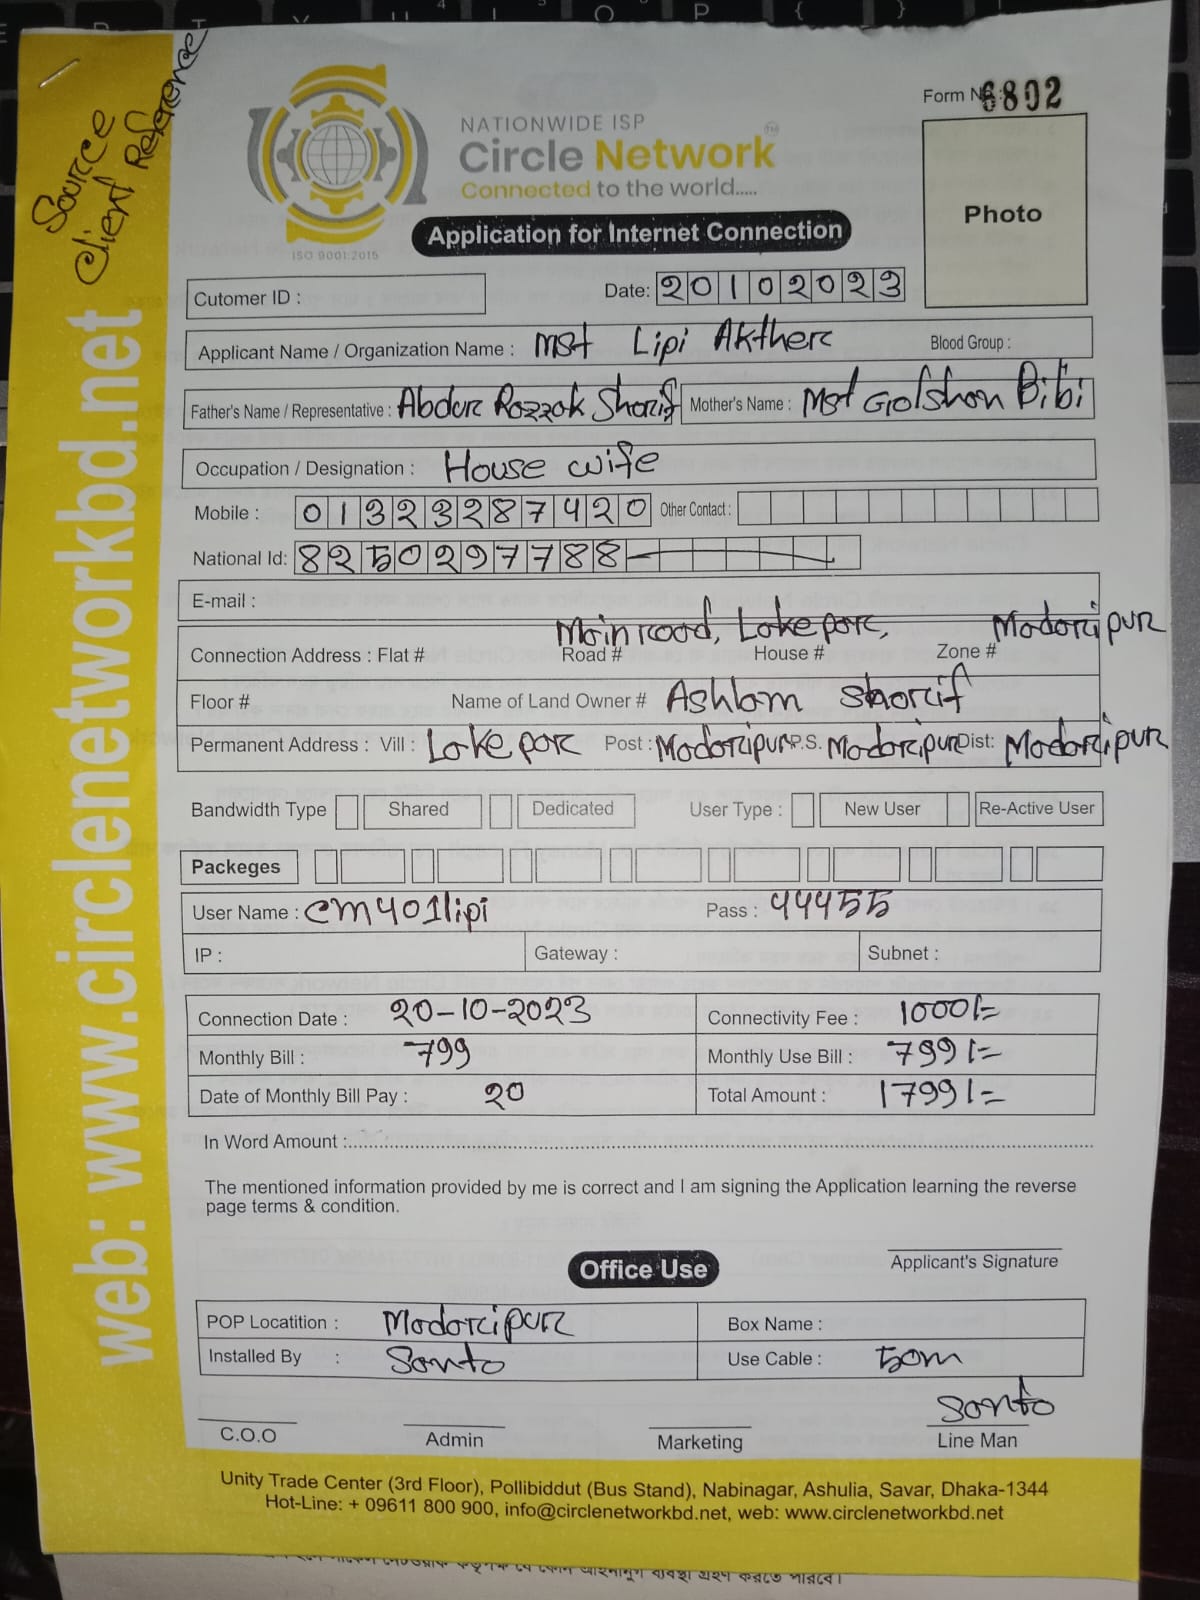 Source
Client Reference
web: www.circlenetworkbd.net
NATIONWIDE ISP
Circle Network TM
Connected to the world.....
ISO 9001:2015
Form No: 6802
Photo
Application for Internet Connection
Cutomer ID :
Date: 20102023
Applicant Name / Organization Name : Mst Lipi Akther Blood Group :
Father's Name / Representative : Abdur Razzak Sharif Mother's Name : Mst Golshan Bibi
Occupation / Designation : House wife
Mobile : 01323287420 Other Contact :
National Id: 8250297788
E-mail :
Main road, Lake par, Madaripur
Connection Address : Flat # Road # House # Zone #
Floor # Name of Land Owner # Ashlam Sharif
Permanent Address : Vill : Lake par Post : Madaripur P.S. Madaripur Dist: Madaripur
Bandwidth Type Shared Dedicated User Type : New User Re-Active User
Packeges
User Name : cm401lipi Pass : 44455
IP : Gateway : Subnet :
Connection Date : 20-10-2023 Connectivity Fee : 1000/=
Monthly Bill : 799 Monthly Use Bill : 799/=
Date of Monthly Bill Pay : 20 Total Amount : 1799/=
In Word Amount :
The mentioned information provided by me is correct and I am signing the Application learning the reverse
page terms & condition.
Applicant's Signature
Office Use
POP Locatition : Madaripur Box Name :
Installed By : Santo Use Cable : 50m
Santo
C.O.O Admin Marketing Line Man
Unity Trade Center (3rd Floor), Pollibiddut (Bus Stand), Nabinagar, Ashulia, Savar, Dhaka-1344
Hot-Line: + 09611 800 900, info@circlenetworkbd.net, web: www.circlenetworkbd.net